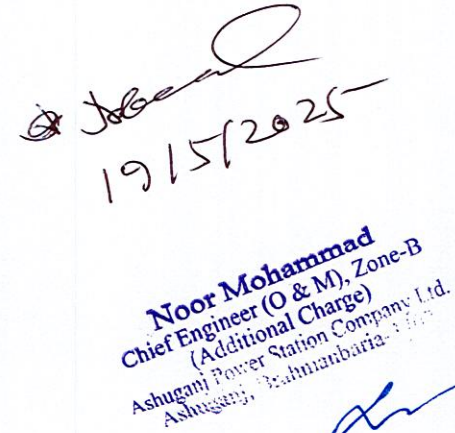 19/5/2025
Noor Mohammad
Chief Engineer (O & M), Zone-B
(Additional Charge)
Ashuganj Power Station Company Ltd.
Ashuganj, Brahmanbaria-